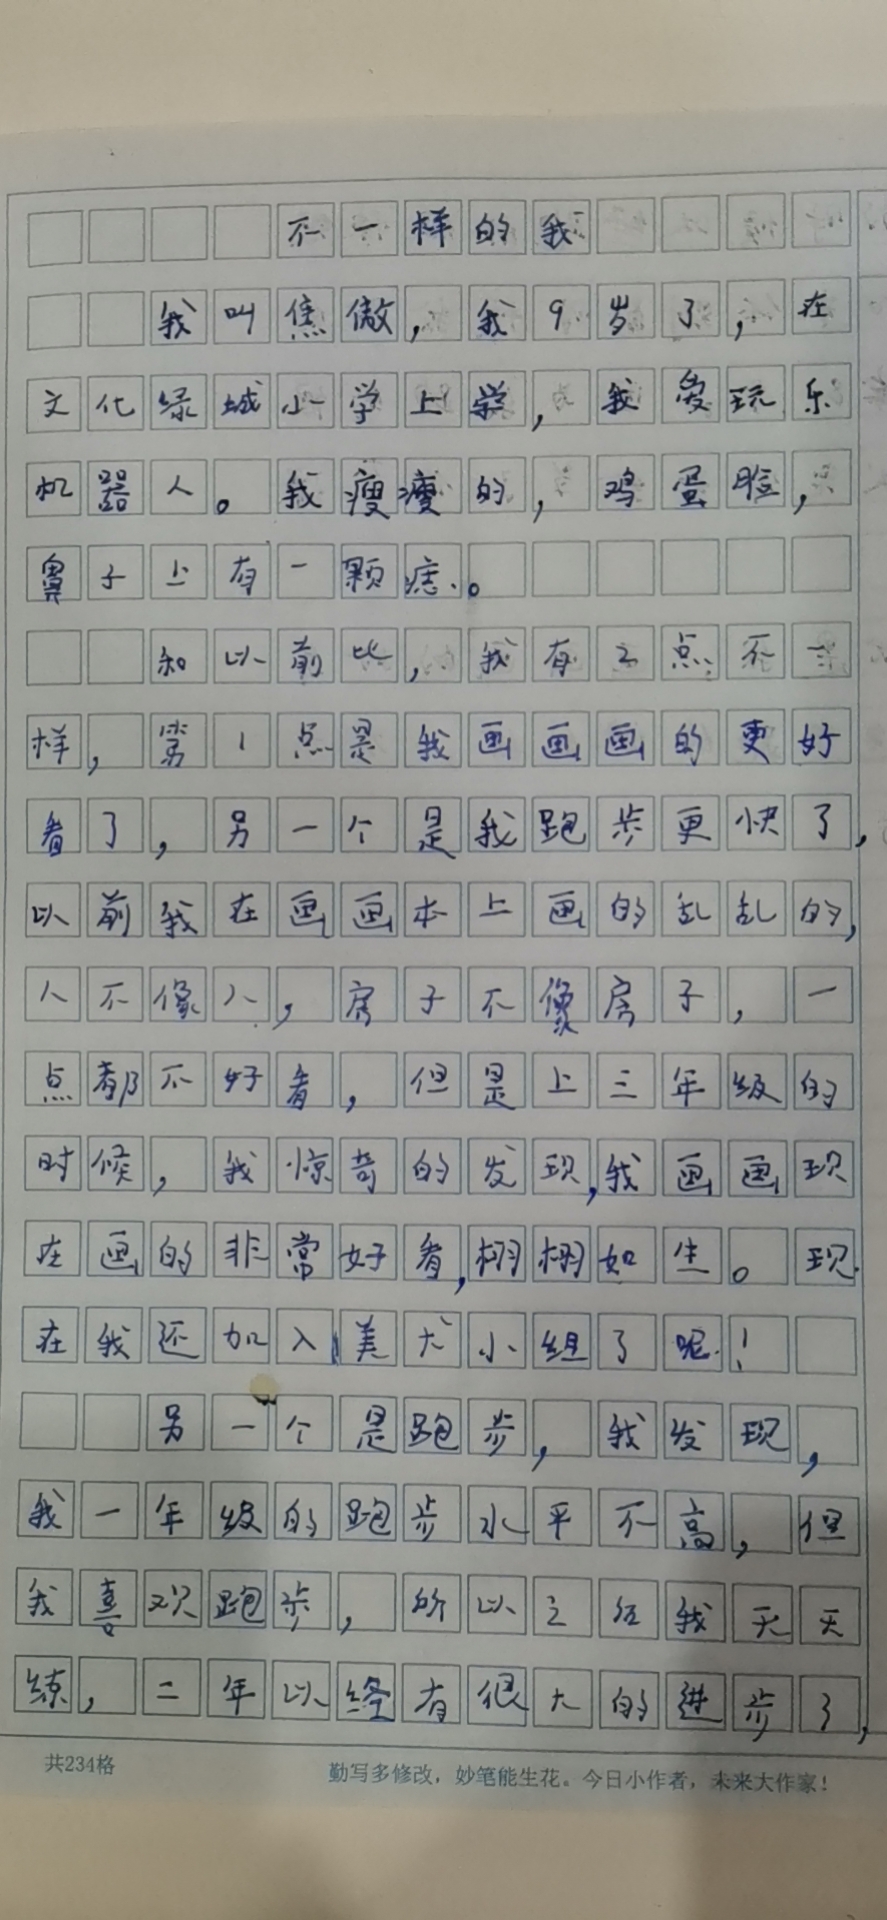 不一样的我
我叫焦傲，我9岁了，在
文化绿城小学上学，我爱玩乐
机器人。我瘦瘦的，鸡蛋脸，
鼻子上有一颗痣。
和以前比，我有2点不一
样，第1点是我画画画的更好
看了，另一个是我跑步更快了，
以前我在画画本上画的乱乱的，
人不像人，房子不像房子，一
点都不好看，但是上三年级的
时候，我惊奇的发现，我画画现
在画的非常好看，栩栩如生。现
在我还加入美术小组了呢！
另一个是跑步，我发现，
我一年级的跑步水平不高，但
我喜欢跑步，所以之后我天天
练，二年以经有很大的进步了，
共234格
勤写多修改，妙笔能生花。今日小作者，未来大作家！